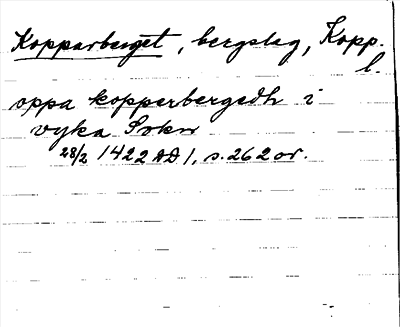 Kopparberget, bergslag, Kopp.
l.
oppa kopperbergedh i
vyka Sokn
28/2 1422 AD 1, s. 262 or.